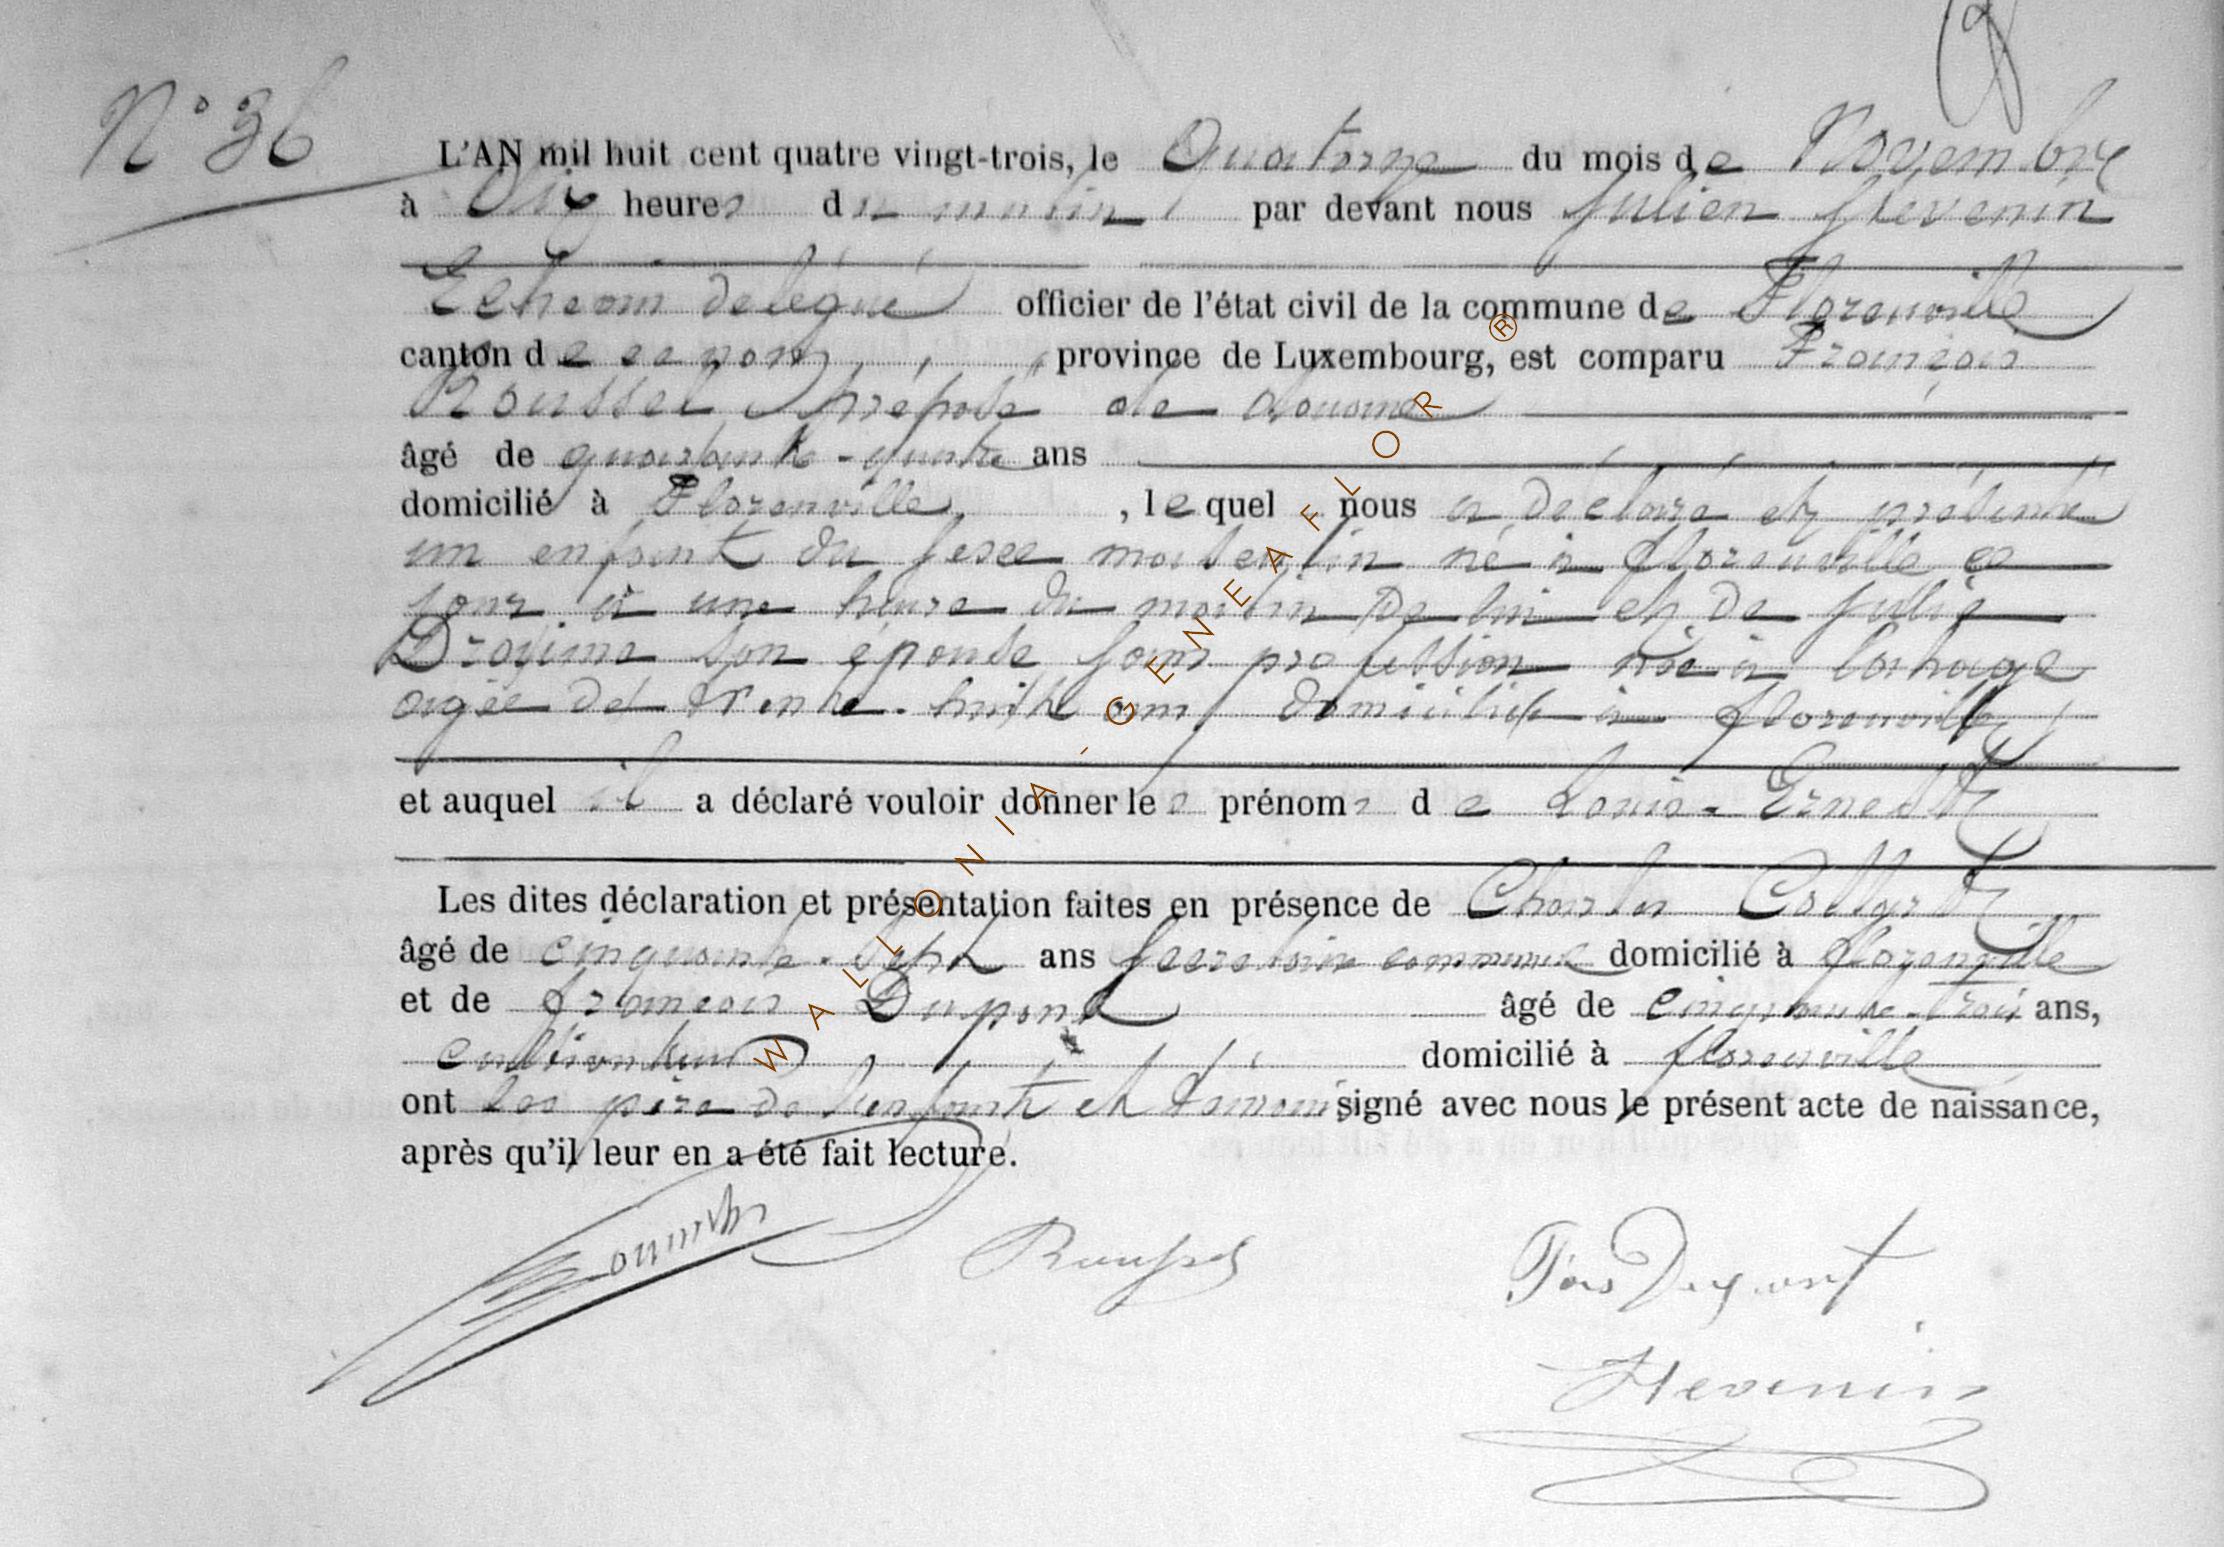 N° 36
L'AN mil huit cent quatre vingt-trois, le Quatorze du mois de Novembre
à Dix heures du matin par devant nous Julien Hevenin
Echevin délégué officier de l'état civil de la commune de Florenville
canton de ce nom, province de Luxembourg, est comparu François
Roussel, préposé de douane
âgé de quarante-quatre ans
domicilié à Florenville, lequel nous a déclaré et présenté
un enfant du sexe masculin né à florenville ce
jour à une heure du matin de lui et de Julie
son épouse sans profession née à
agée de trente-huit ans domiciliée à florenville
et auquel il a déclaré vouloir donner les prénoms de Louis-Ernest
Les dites déclaration et présentation faites en présence de Charles
âgé de cinquante-sept ans secretaire communal domicilié à florenville
et de françois Dupont âgé de cinquante-trois ans,
cultivateur domicilié à florenville
ont les père de l'enfant et témoins signé avec nous le présent acte de naissance,
après qu'il leur en a été fait lecture.
Roussel
Fois Dupont
Hevenin
WALLONIA-GENEAFLOR ®